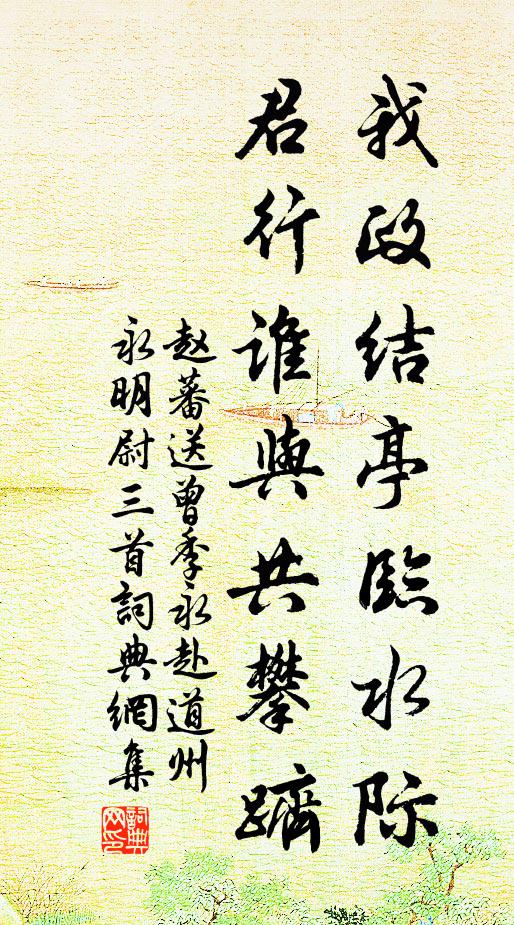 我政结亭臨水际
君行谁與共攀躋
赵蕃送曾季永赴道州
永明尉三首詞典網集
詞典网印